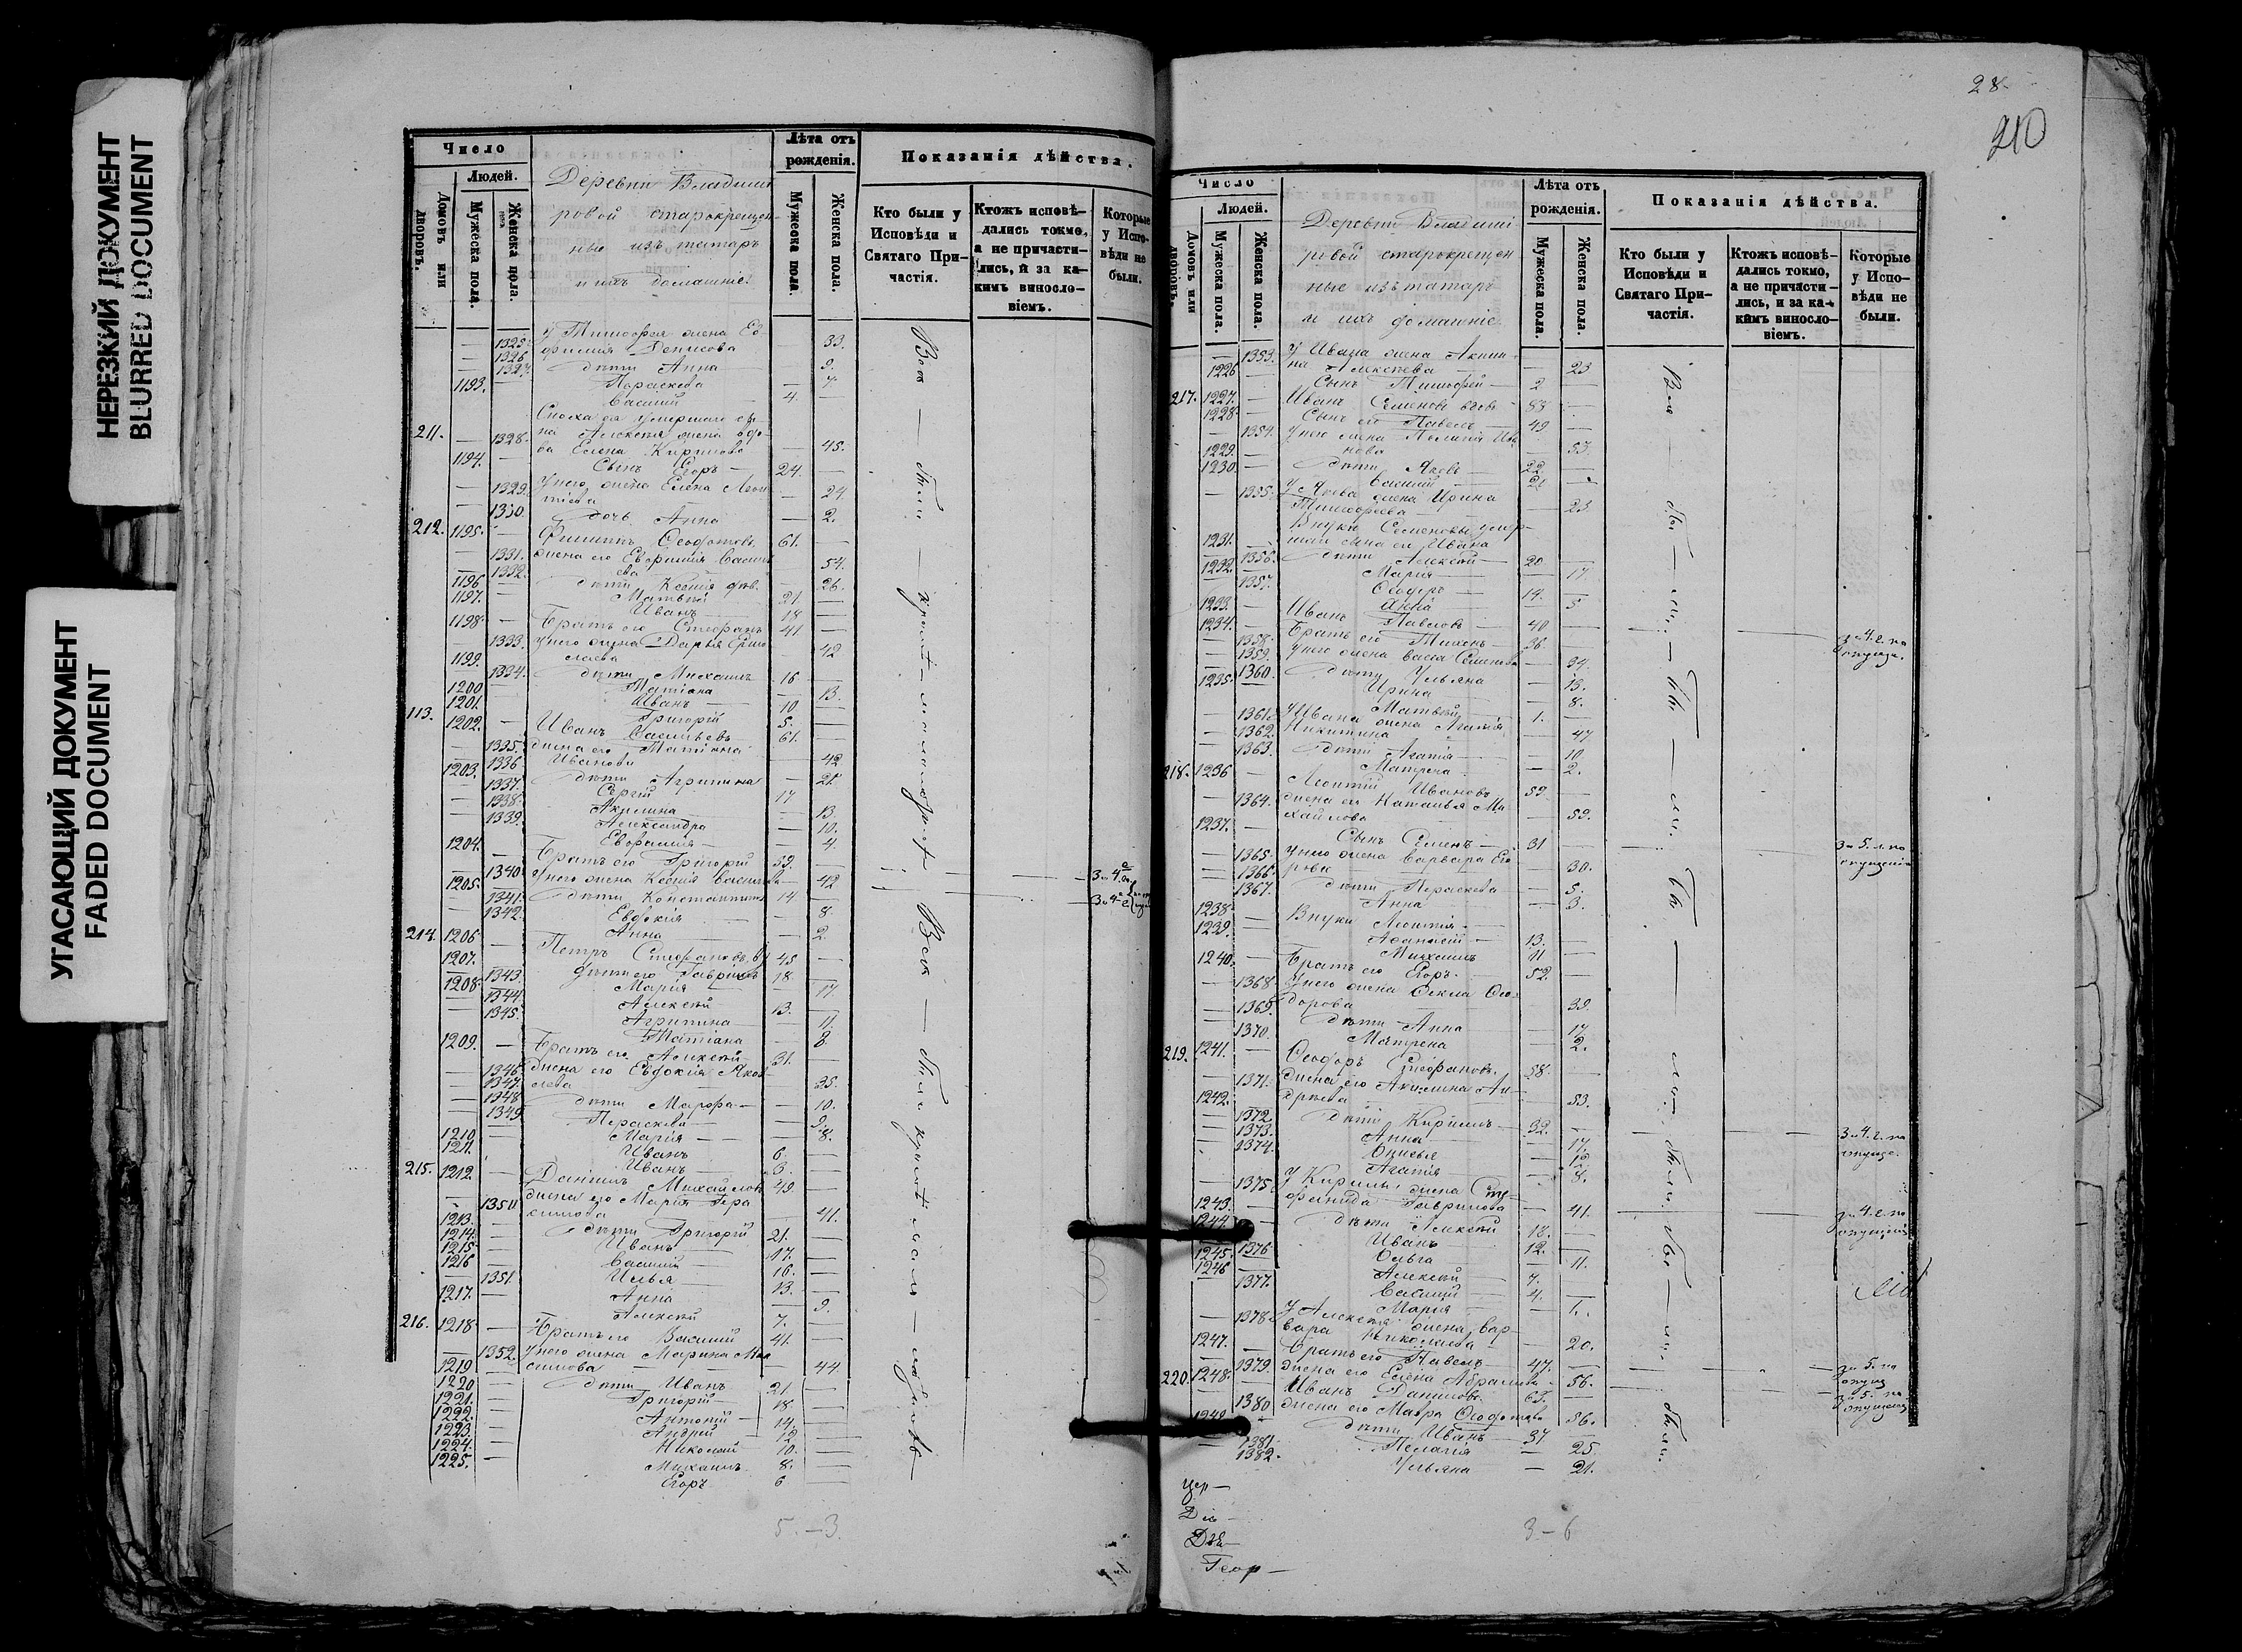 НЕРЕЗКИЙ ДОКУМЕНТ
BLURRED DOCUMENT
УГАСАЮЩИЙ ДОКУМЕНТ
FADED DOCUMENT
Число
Людей.
Домовъ или дворовъ.
Мужеска пола.
Женска пола.
Деревни Владими
ровой старокрещен
ные изъ татаръ
и ихъ домашніе.
Лѣта отъ рожденія.
Мужеска пола.
Женска пола.
Показанія дѣйства.
Кто были у Исповѣди и Святаго Причастія.
Ктожъ исповѣдались токмо, а не причастились, и за какимъ винословіемъ.
Которые у Исповѣди не были.
1325. У Тимофея жена Ев
фимія Денисова — 33.
1326. дѣти Анна — 9.
1327. Параскева — 7.
1193. Василій 4. —
Сноха да умершаго сы
211. — 1328. на Алексѣя жена вдо
ва Елена Кирилова — 45.
1194. Сынъ Егоръ — 24. —
1329. У него жена Елена Леон
тіева — 24
1330 дочь Анна — 2.
212. 1195. Филиппъ Ѳеодотовъ 61. —
1331. жена его Евфимія Васил
ева — 54.
1332. дѣти Ксенія дѣв. — 26.
1196 Матвѣй 21 —
1197. Иванъ 18 —
1198. Братъ его Стефанъ 41. —
1333. У него жена Дарья
— 42
1199. дѣти Михаилъ 16 —
1334. Матіана — 13.
1200 Иванъ 10 —
1201. Григорій 5. —
113. 1202. Иванъ Васильевъ 61. —
1335. жена его Матіана
Иванова — 42
1336 дѣти Агрипина — 21.
1203. Сергій 17
1337. Акилина — 13.
1338. Александра — 10.
1339. Евфимія — 4.
1204. Братъ его Григорій 59. —
1340. У него жена Ксенія Васильева 42
1205. дѣти Константинъ 14. —
1341. Евдокія — 8.
1342. Анна — 2.
214. 1206. Петръ Стефановъ 45 —
1207. дѣти его Гавріилъ 18. —
1343. Марія — 17.
1208. Алексѣй 13. —
1344. Агрипина — 11
1345. Матіана — 8
1209. Братъ его Алексѣй 31. —
1346. жена его Евдокія Яков
лева — 35.
1347. дѣти Марфа — 10.
1348 Параскева — 9.
1349 Марія — 8.
1210 Иванъ 6. —
1211. Иванъ 3. —
215. 1212. Даніилъ Михайловъ 49. —
1350 жена его Марія Гера
симова — 41.
1213. дѣти Григорій 21. —
1214. Иванъ 17. —
1215 Василій 16. —
1216 Илья 13. —
1351 Анна — 9.
1217. Алексѣй 7. —
216. 1218. Братъ его Василій 41. —
1352. У него жена Марина Мак
симова — 44
1219 дѣти Иванъ 21. —
1220 Григорій 18 —
1221. Антоній 14. —
1222. Андрей 12 —
1223. Николай 10. —
1224. Михаилъ 8. —
1225. Егоръ 6 —
Всѣ — были — кромѣ — малолѣтн
Всѣ — были кромѣ малол —
5. — 3.
28.
210
Число
Людей.
Домовъ или дворовъ.
Мужеска пола.
Женска пола.
Деревни Владими
ровой старокрещен
ные изъ татаръ
и ихъ домашніе.
Лѣта отъ рожденія.
Мужеска пола.
Женска пола.
Показанія дѣйства.
Кто были у Исповѣди и Святаго Причастія.
Ктожъ исповѣдались токмо, а не причастились, и за какимъ винословіемъ.
Которые у Исповѣди не были.
1353. У Ивана жена Акили
на Алексѣева — 23
1226 Сынъ Тимофей 2 —
217. 1227. Иванъ Семеновъ вдовъ 83 —
1228. Сынъ его Павелъ 49 —
1354. У него жена Ива
нова — 53.
1229. дѣти Яковъ 22. —
1230. Василій 21 —
1355. У Якова жена Ирина
Тимофеева — 23
Внуки Семеновы умер
шаго сына его Ивана
1231. дѣти Алексѣй 20 —
1356. Марія — 17.
1232. Ѳеодоръ 14. —
1357. Анна — 5
1233. Иванъ Павловъ 40 —
1234. Братъ его Тихонъ 36. —
1358. У него жена Васса Семенова 34.
1359. дѣти Ульяна — 13.
1360. Ирина — 8.
1235. Матвѣй 1. —
1361. У Ивана жена Агафія
Никитина — 47
1362. дѣти Агафія — 10
1363. Матрена — 2.
218. 1236 Леонтій Ивановъ 59. —
1364. жена его Наталья Ми
хайлова — 59.
1237. Сынъ Семенъ 31 —
1365. У него жена Варвара Его
рова — 30.
1366. дѣти Параскева — 5.
1367. Анна — 3.
Внуки Леонтія
1238. Аѳанасій 13. —
1239. Михаилъ 11 —
1240. Братъ его Егоръ 52. —
1368 У него жена Ѳекла Ѳео
дорова — 39.
1369. дѣти Анна — 17
1370. Матрена — 2.
219. 1241. Ѳеодоръ Стефановъ 58. —
1371. жена его Акилина Ан
дреева — 53.
1242. дѣти Кирилъ 32. —
1372. Анна — 17.
1373. Онисья — 12
1374. Агафія — 8.
1375. У Кирилы жена Сте
фанида Гаврилова — 41.
1243. дѣти Алексѣй 18. —
1244. Иванъ 12. —
1376 Ольга — 11.
1245. Алексѣй 7. —
1246 Василій 4. —
1377. Марія — 1.
1378. У Алексѣя жена Вар
вара Николаева — 20.
1247. Братъ его Павелъ 47. —
1379. жена его Елена Абрамова 56.
220. 1248. Иванъ Даниловъ 63. —
1380 жена его Мавра Ѳеодотова 56.
1249 дѣти Иванъ 37 —
1381. Пелагія — 25
1382. Ульяна — 21.
3 и 4. г. по
опуще.
3 и 5. г. по
опущенію
3 и 4. г. по
опуще.
опущен
3 — 6